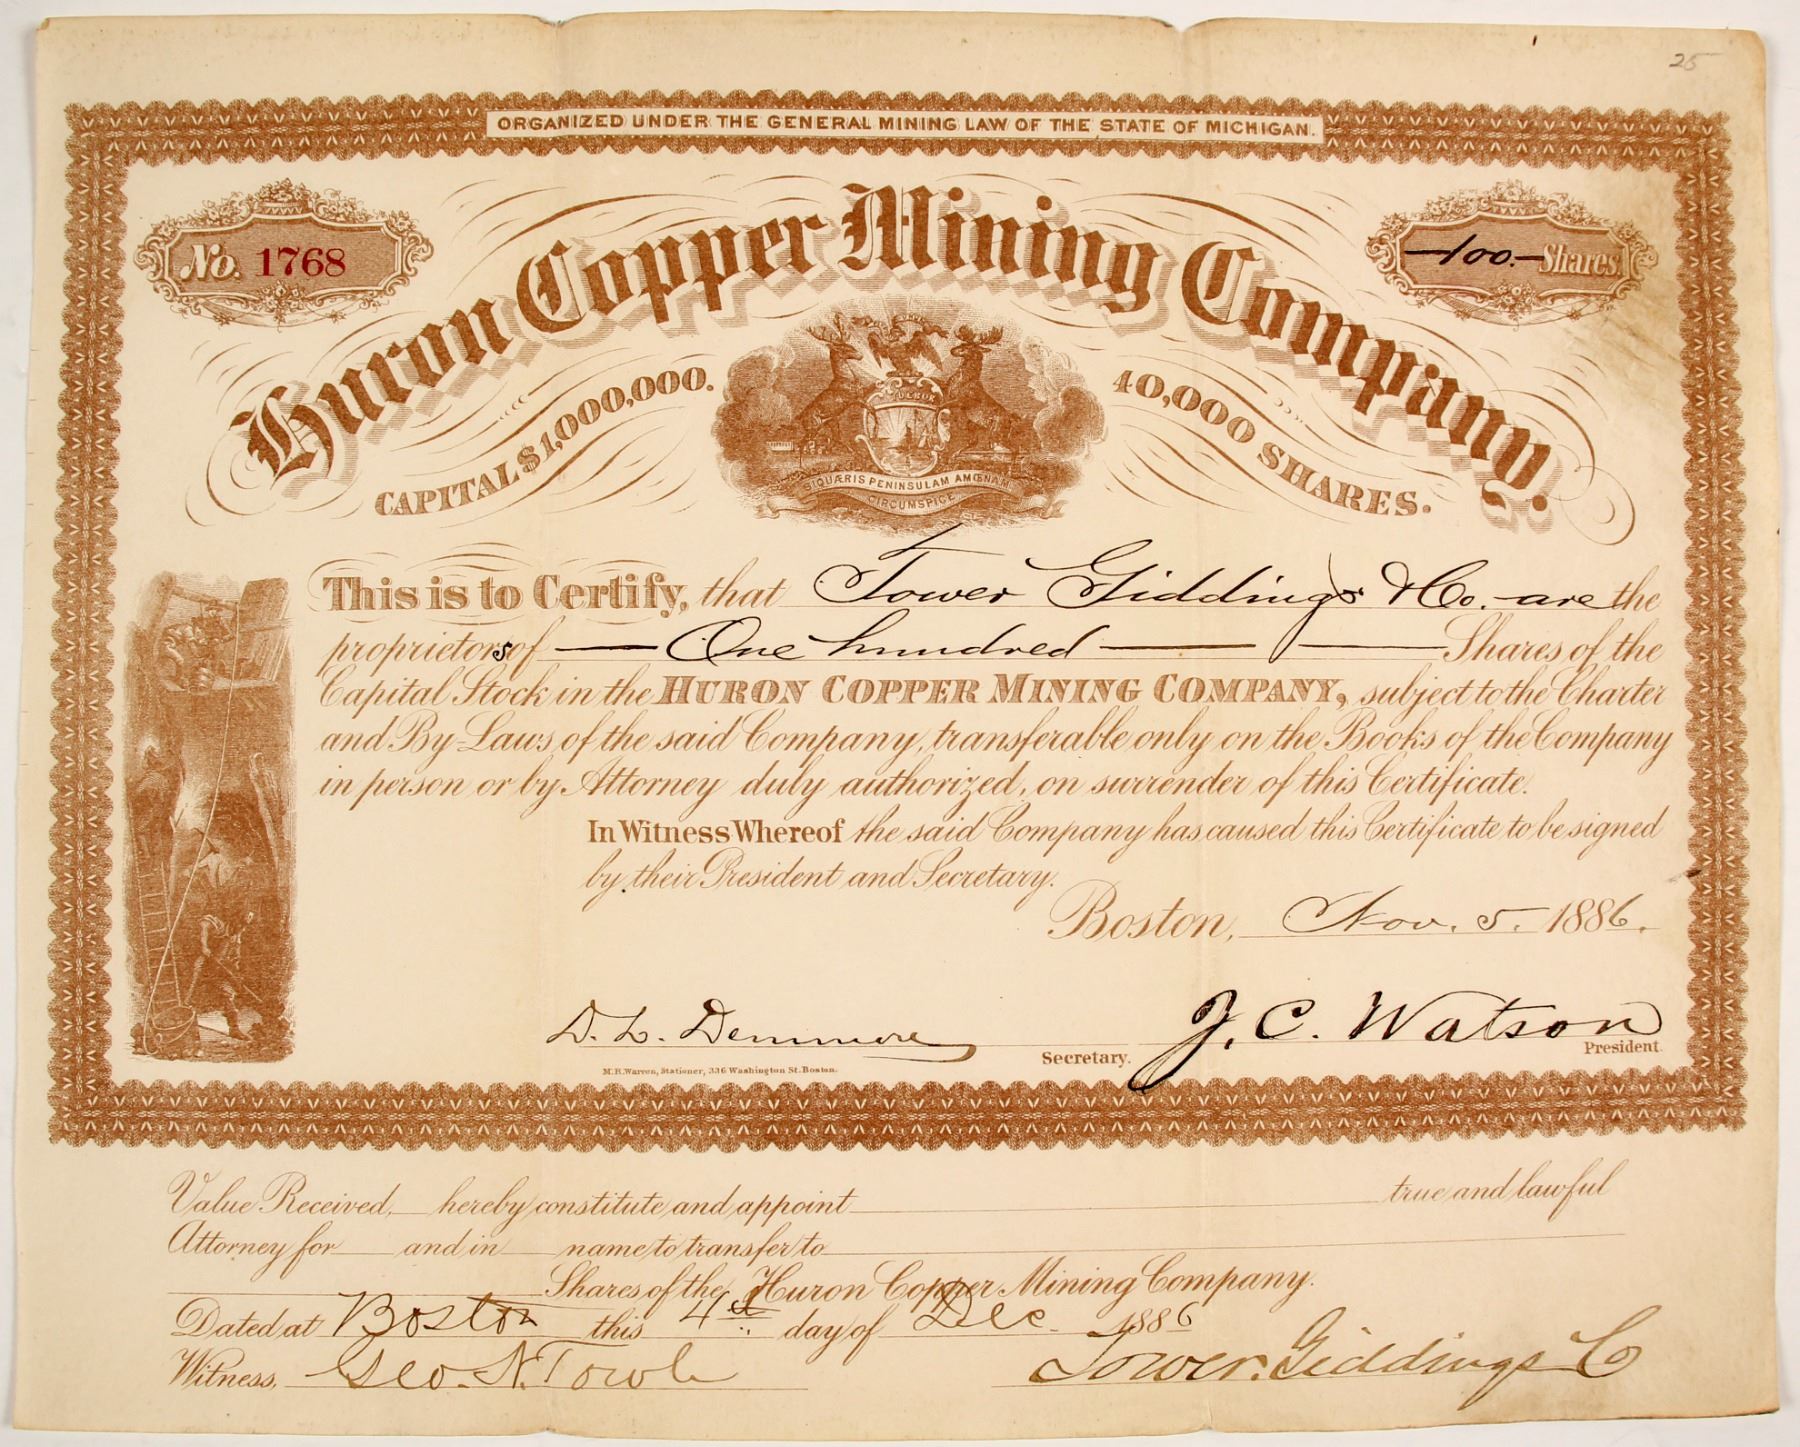 25
ORGANIZED UNDER THE GENERAL MINING LAW OF THE STATE OF MICHIGAN.
No. 1768
—100.— Shares.
Huron Copper Mining Company.
CAPITAL $1,000,000.
40,000 SHARES.
TUEBOR
SIQUÆRIS PENINSULAM AMŒNAM
CIRCUMSPICE
This is to Certify, that Tower Giddings & Co. are the
proprietors of — One hundred — — Shares of the
Capital Stock in the HURON COPPER MINING COMPANY, subject to the Charter
and By-Laws of the said Company, transferable only on the Books of the Company
in person or by Attorney duly authorized, on surrender of this Certificate.
In Witness Whereof the said Company has caused this Certificate to be signed
by their President and Secretary.
Boston, Nov. 5. 1886.
D. L. Demmore Secretary.
J. C. Watson President.
M.R. Warren, Stationer, 336 Washington St. Boston.
Value Received, hereby constitute and appoint true and lawful
Attorney for and in name to transfer to
Shares of the Huron Copper Mining Company.
Dated at Boston this 4st day of Dec 1886
Witness, Geo. N. Towle
Tower. Giddings Co